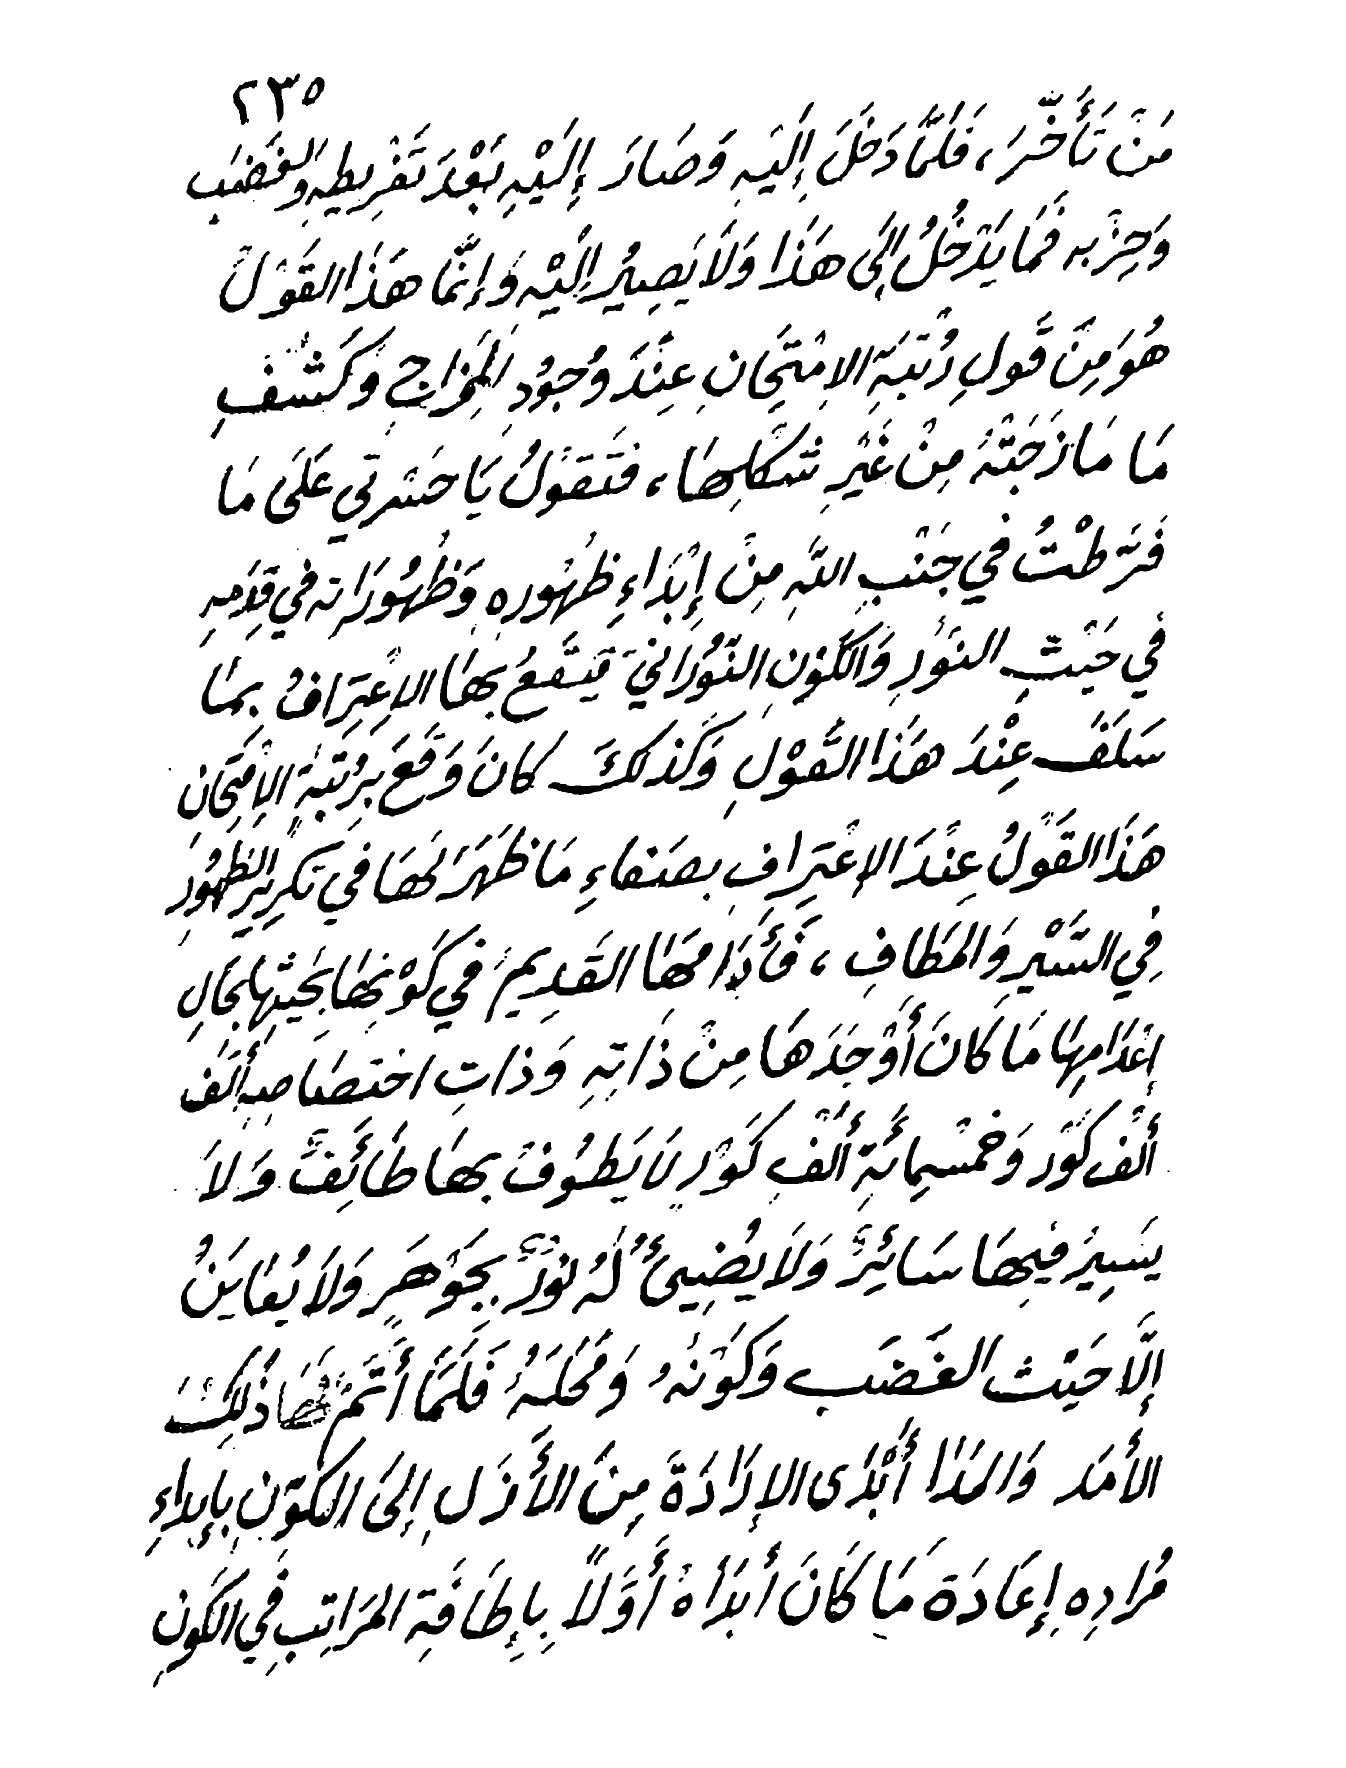 ٢٣٥
مَنْ تَأَخَّرَ، فَلَمَّا دَخَلَ إِلَيْهِ وَصَارَ إِلَيْهِ بَعْدَ تَفْرِيطِهِ وَالغَضَبِ
وَحِزْبِهِ فَمَا يَدْخُلُ إِلَى هَذَا وَلَا يَصِيرُ إِلَيْهِ وَإِنَّمَا هَذَا القَوْلُ
هُوَ مِنْ قَولِ رُتْبَةِ الِامْتِحَانِ عِنْدَ وُجُودِ المِزَاجِ وَكَشْفِ
مَا مَازَجَتْهُ مِنْ غَيْرِ شَكْلِهَا، فَتَقُولُ يَا حَسْرَتِي عَلَى مَا
فَرَّطْتُ فِي جَنْبِ اللَّهِ مِنْ إِبْدَاءِ ظُهُورِهِ وَظُهُورَاتِهِ فِي قِدَمِهِ
فِي حَيْثِ النُّورِ وَالكَوْنِ النُّورَانِيِّ فَيَقَعُ بِهَا الِاعْتِرَافُ بِمَا
سَلَفَ عِنْدَ هَذَا القَوْلِ وَكَذَلِكَ كَانَ وَقَعَ بِرُتْبَةِ الِامْتِحَانِ
هَذَا القَوْلُ عِنْدَ الِاعْتِرَافِ بِصَفَاءِ مَا ظَهَرَ لَهَا فِي تَكْرِيرِ الظُّهُورِ
فِي السَّيْرِ وَالمَطَافِ، فَأَدَامَهَا القَدِيمُ فِي كَوْنِهَا بِحَيْثِهَا بِحَالِ
إِعْدَامِهَا مَا كَانَ أَوْجَدَهَا مِنْ ذَاتِهِ وَذَاتِ اخْتِصَاصِهِ أَلْفَ
أَلْفِ كَوْرٍ وَخَمْسِمِائَةِ أَلْفِ كَوْرٍ لَا يَطُوفُ بِهَا طَائِفٌ وَلَا
يَسِيرُ فِيهَا سَائِرٌ وَلَا يُضِيئُ لَهُ نُورٌ بِجَوْهَرٍ وَلَا يُعَايَنُ
إِلَّا حَيْثُ الغَضَبِ وَكَوْنُهُ وَمَحَلُّهُ فَلَمَّا أَتَمَّ لَهَا ذَلِكَ
الأَمَدَ وَالمَدَا أَبْدَى الإِرَادَةَ مِنَ الأَزَلِ إِلَى الكَوْنِ بِإِبْدَاءِ
مُرَادِهِ إِعَادَةَ مَا كَانَ أَبْدَأَهُ أَوَّلاً بِإِطَافَةِ المَرَاتِبِ فِي الكَوْنِ